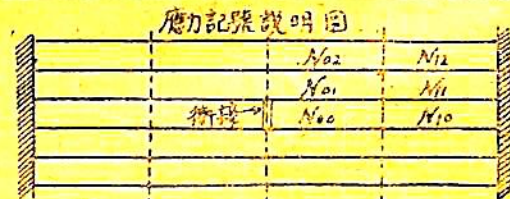 應力記號説明図
N02 N12
N01 N11
衝撃→ N00 N10